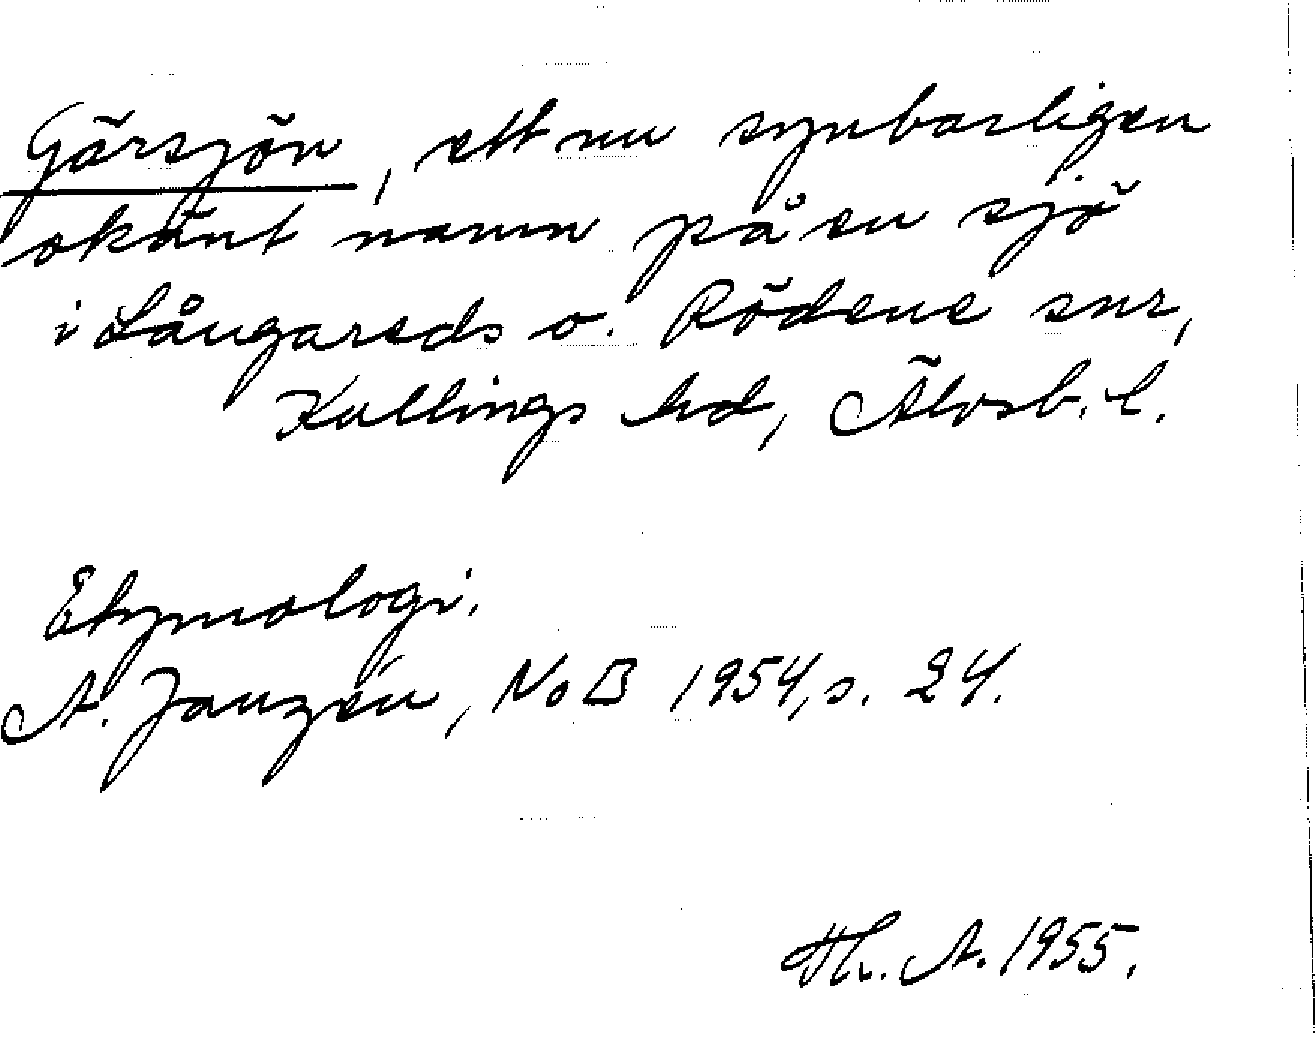 Gärsjön, ett nu synbarligen
okänt namn på en sjö
i Långareds o. Rödene snr,
Kullings hd, Älvsb. l.
Etymologi.
A. Janzén, NoB 1954, s. 24.
Th. A. 1955.